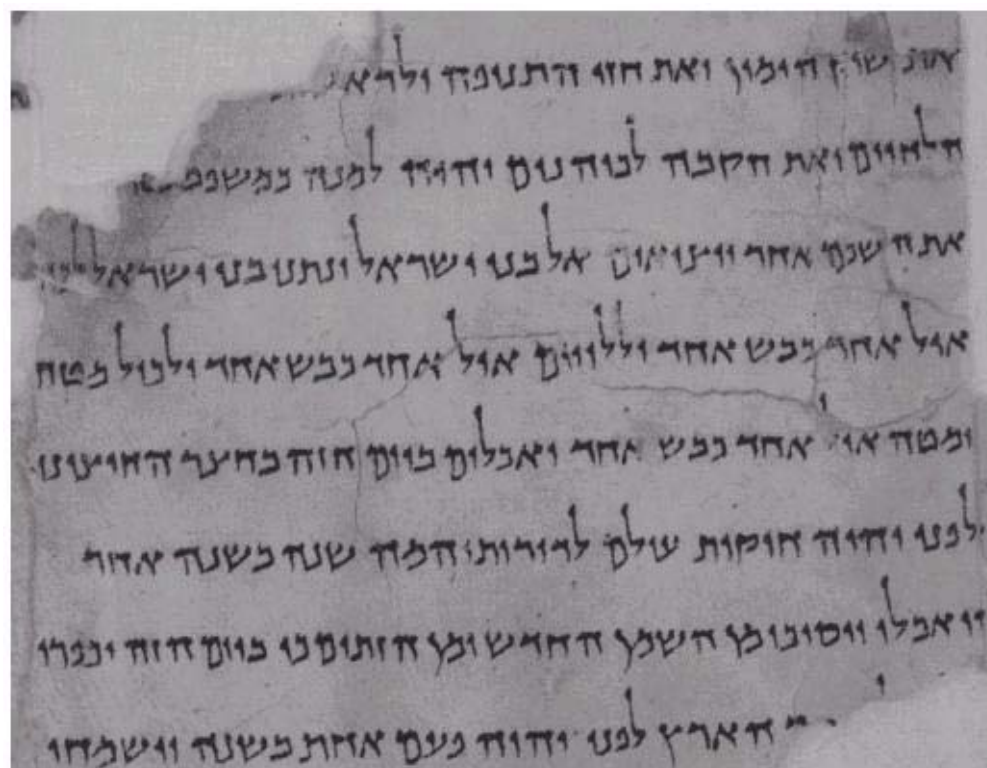 את שוק הימין ואת חזי התנופה ולרא
הלחיים ואת הקבה לכוהנים יהיה למנה כמשפטמה
את השכם אחר יוציאום אל בני ישראל ונתנו בני ישראל
איל אחד כבש אחד וללויים איל אחד כבש אחד ולכול מטה
ומטה איל אחד כבש אחד ואכלום ביום הזה בחצר החיצונ׳
לפני יהוה חוקות עולם לדורותיהמה שנה בשנה אחר
יואכלו ויסוכו מן השמן החדש ומן הזתים כי ביום הזה יכפרו
הארץ לפני יהוה פעם אחת בשנה וישמחו